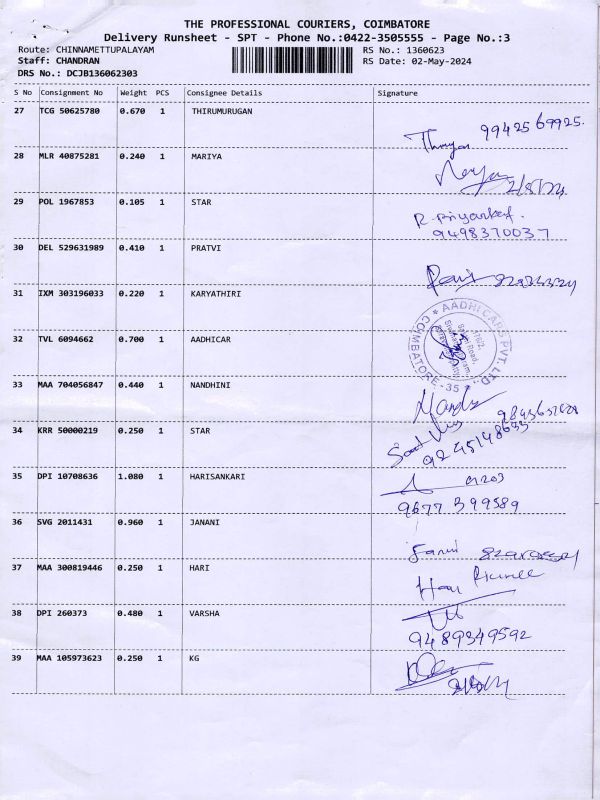 THE PROFESSIONAL COURIERS, COIMBATORE
Delivery Runsheet - SPT - Phone No.:0422-3505555 - Page No.:3
Route: CHINNAMETTUPALAYAM RS No.: 1360623
Staff: CHANDRAN RS Date: 02-May-2024
DRS No.: DCJB136062303
S No Consignment No Weight PCS Consignee Details Signature
27 TCG 50625780 0.670 1 THIRUMURUGAN
9942569925.
28 MLR 40875281 0.240 1 MARIYA
29 POL 1967853 0.105 1 STAR
R. Priyanka
9498370037
30 DEL 529631989 0.410 1 PRATVI
31 IXM 303196033 0.220 1 KARYATHIRI
32 TVL 6094662 0.700 1 AADHICAR
AADHI CARS PVT. LTD
COIMBATORE-35
33 MAA 704056847 0.440 1 NANDHINI
34 KRR 50000219 0.250 1 STAR
35 DPI 10708636 1.080 1 HARISANKARI
9677399589
36 SVG 2011431 0.960 1 JANANI
37 MAA 300819446 0.250 1 HARI
38 DPI 260373 0.480 1 VARSHA
9489349592
39 MAA 105973623 0.250 1 KG